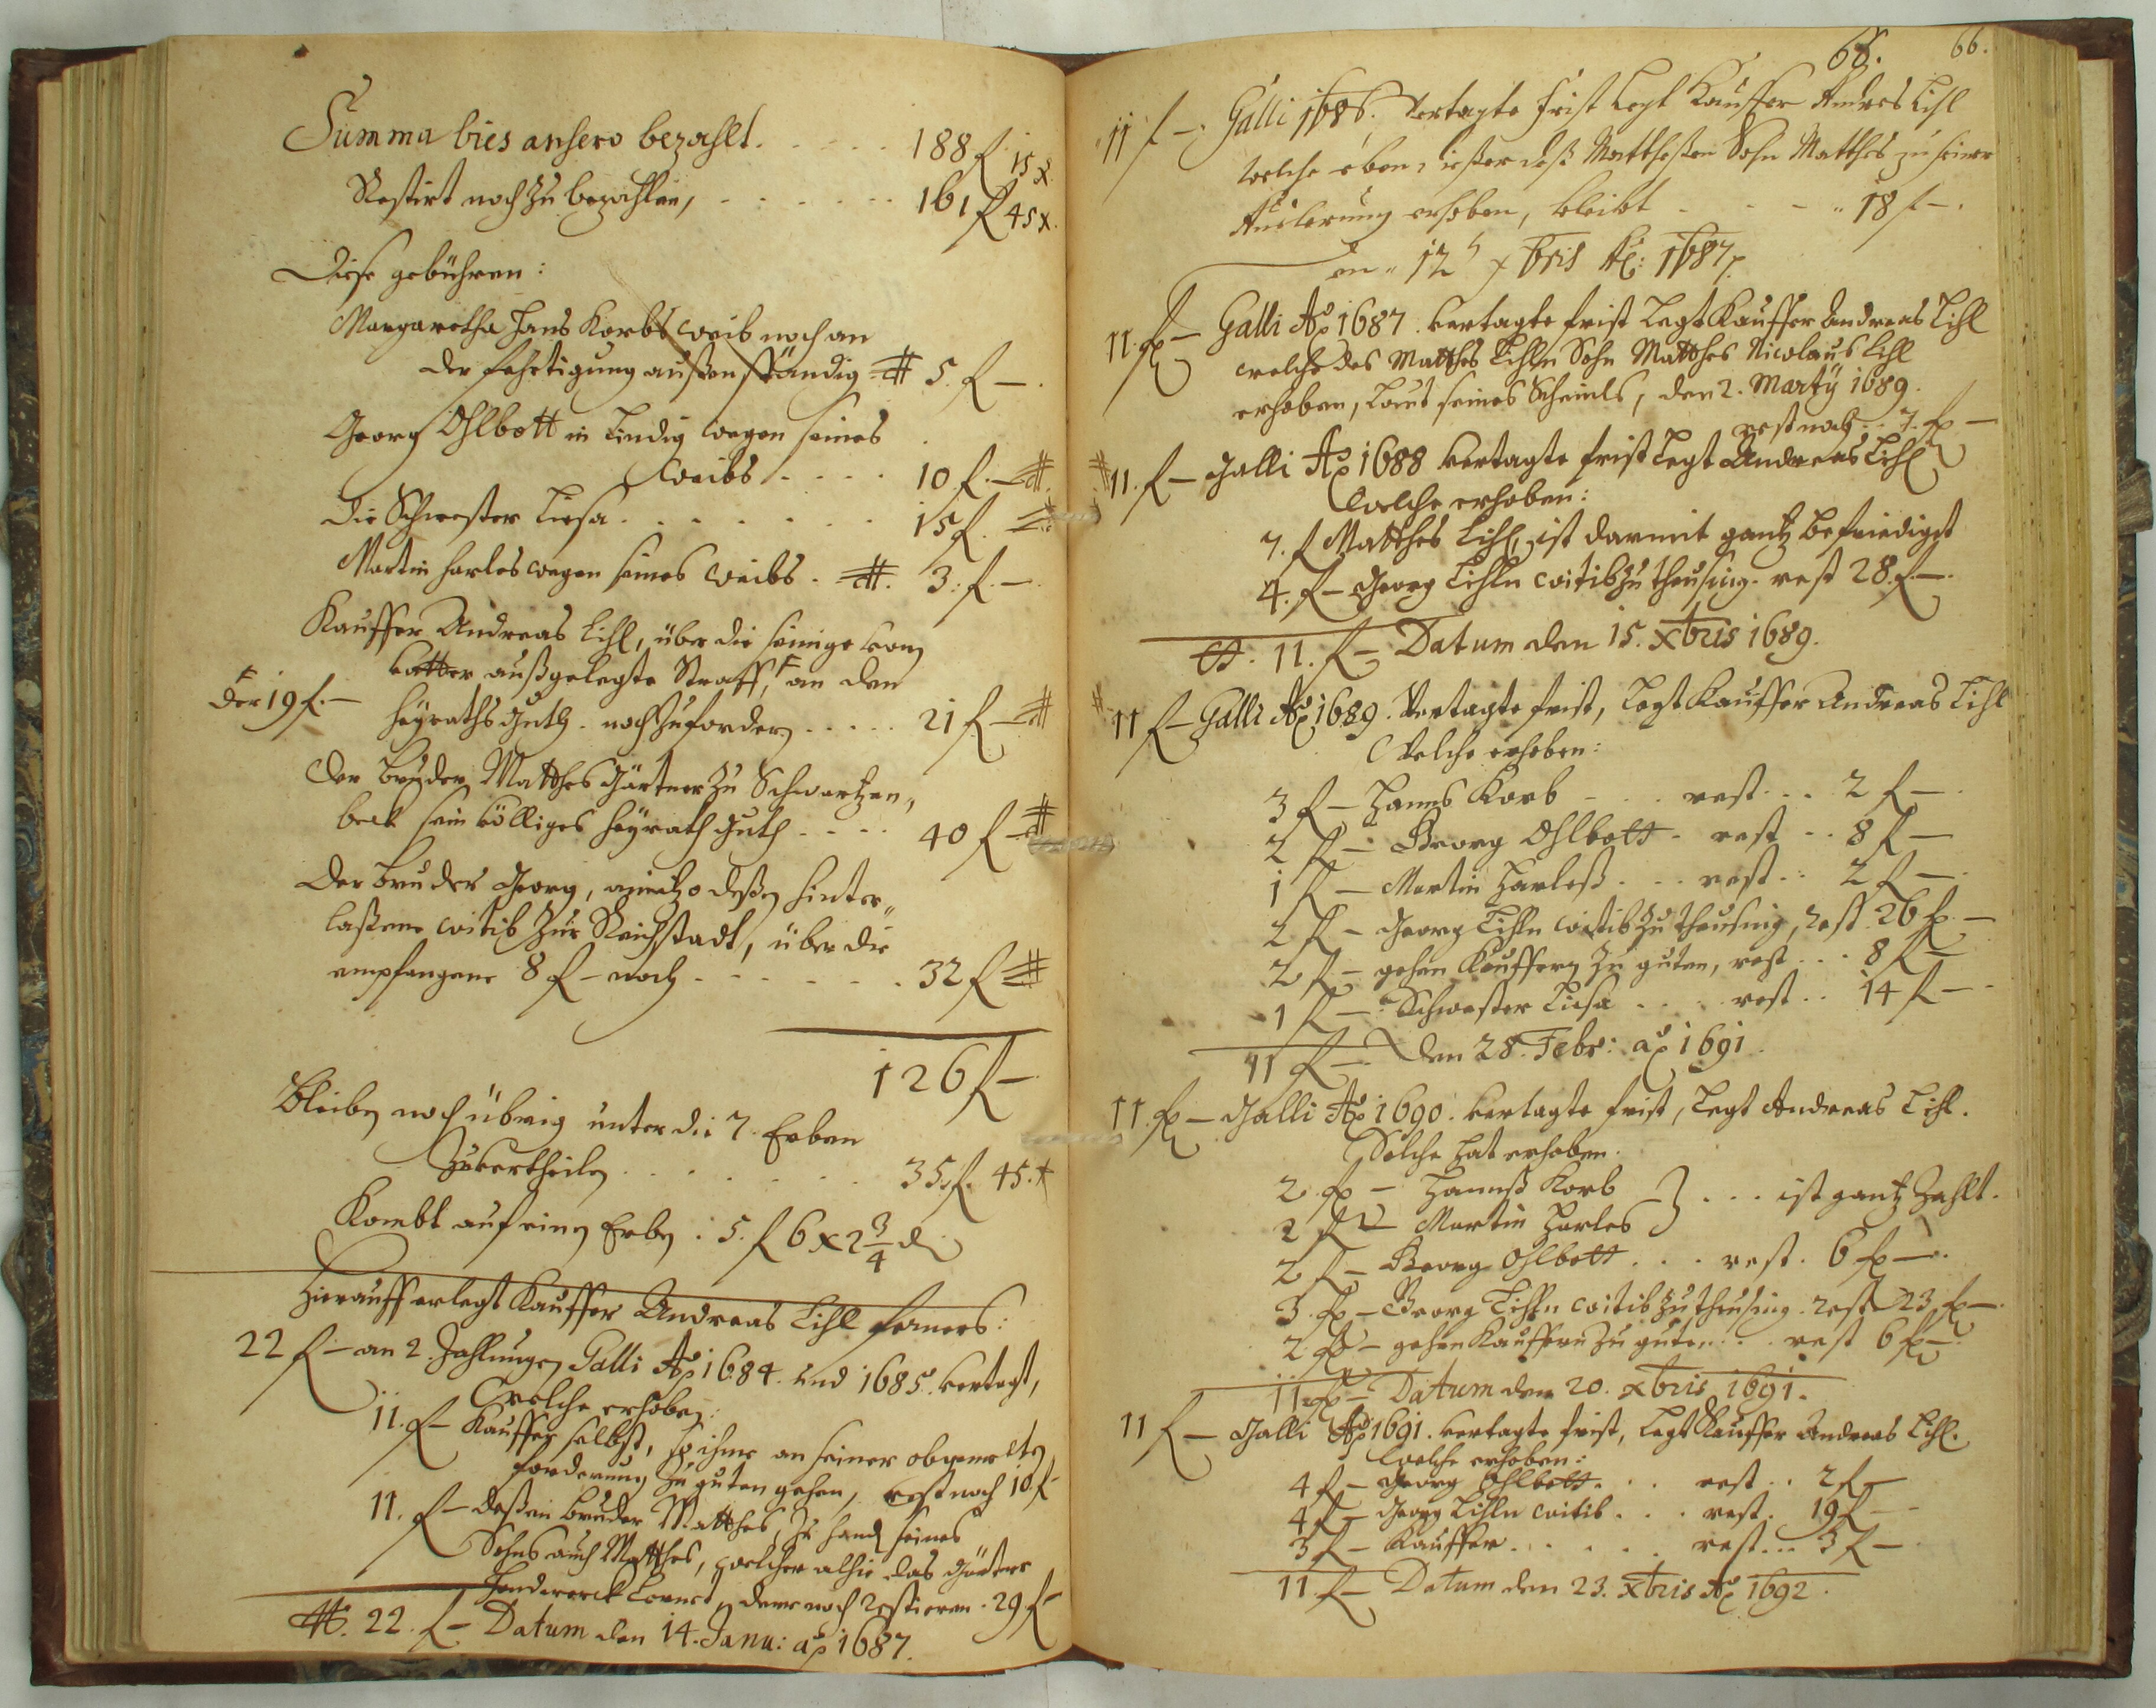 Summa bies anhero bezahlt . . . . . 188 f 15 x
Restirt noch zu bezahlen, . . . . . . 161 f 45 x.
Diese gebühren:
Margaretha Hans Korbs weib noch an
der fehrtigung außenständig 5. f —.
Georg Ohlbott in Lindig wegen seines
weibs . . . . 10. f. —
die Schwester Liesa . . . . . . . 15 f.
Martin Harles wegen seines weibs . 3. f. —
Kauffer Andreas Lihl, über die seinige vom
vatter außgelegte Straff, an den
der 19 f. —
heyraths Guth. noch zufordern . . . . . 21 f —
der bruder Matthes Gärtner zu Schwartzen,,
beck sein völliges heyrath Guth . . . . 40 f —
der bruder Georg, anietzo deßen hinter,,
laßene witib zur Reichstadt, über die
empfangene 8 f — noch . . . . . . . 32 f
126 f —
Bleiben noch übrig unter die 7. Erben
zuvertheilen . . . . . . . 35. f. 45. x
Kombt auf einen Erben : 5. f 6 x 2 3/4 d
Hierauff erlegt Kauffer Andreas Lihl ferners:
22 f — an 2. Zahlungen Galli Ao 1684. und 1685. vertagt,
welche erhoben:
11. f — Kauffer selbst, so ihme an seiner obgemelten
forderung zu guten gehen, rest noch 10. f —
11. f — deßen bruder Matthes, zu handen seines
Sohns auch Matthes, welcher alhie das Gärtner
Handwerck lernet, deme noch restieren . 29. f —
22. f — Datum den 14. Janu: ao 1687.
65. 66.
11 f — Galli 1686. Vertagte frist legt Kauffer Andres Lihl
welche eben deß Matthesen Sohn Matthes zu seiner
erhoben, bleibt . . . . 18 f —.
den 12 xbris Ao: 1687.
11. f — Galli Ao 1687. vertagte frist legt Kauffer Andreas Lihl
welche des Matthes Lihln Sohn Matthes Nicolaus Lihl
erhoben, laut seines Scheinls, den 2. Martÿ 1689.
rest noch . . 7. f —
11. f — Galli Ao 1688 vertagte frist legt Andreas Lihl
welche erhoben:
7. f Matthes Lihl, ist darmit gantz befriedigt
4. f — Georg Lihln witib zu theusing. rest 28. f —.
11. f — Datum den 15. xbris 1689.
11 f — Galli Ao 1689. Vertagte frist, legt Kauffer Andreas Lihl
Welche erhoben:
3 f — Hanns Korb . . . rest . . . 2 f —.
2 f — Georg Ohlbott . rest . . 8 f —
1 f — Martin Harleß . . . rest . . 2 f —.
2 f — Georg Lihln witib zu theusing, rest 26 f. —
2 f — gehen Kauffern zu guten, rest . . . 8 f —
1 f — Schwester Liesa . . . . rest . . 14 f —
11 f — den 28. Febr: ao 1691.
11. f — Galli Ao 1690. vertagte frist, legt Andreas Lihl.
Solche hat erhoben.
2 f — Hannß Korb
2 f — Martin Harles } . . . ist gantz zahlt.
2 f — Georg Ohlbott . . . rest . 6 f —.
3. f — Georg Lihln witib zu theusing . rest 23 f —.
2 f — gehen Kauffern zu guten . . . rest 6 f —
11 f — Datum den 20. xbris 1691.
11 f — Galli Ao 1691. vertagte frist, legt Kauffer Andreas Lihl.
welche erhoben:
4 f — Georg Ohlbott . . . rest . . 2 f —
4 f — Georg Lihln witib . . . rest . 19 f —
3 f — Kauffer . . . . . . rest . . . 3 f —
11. f — Datum den 23. xbris Ao 1692.